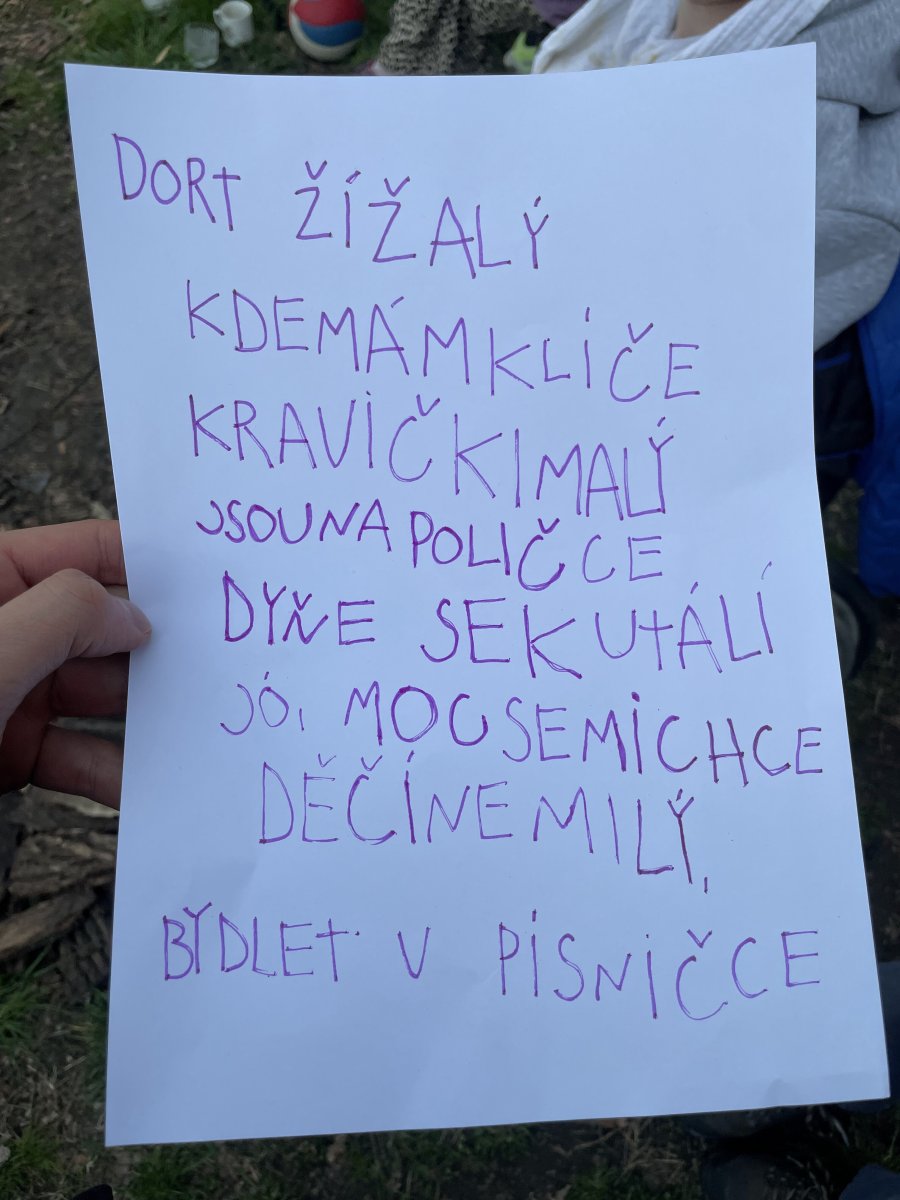 DORT ŽÍŽALÝ
KDEMÁMKLÍČE
KRAVIČKIMALÝ
JSOUNAPOLIČCE
DYŇE SEKUTÁLÍ
JÓ, MOCSEMICHCE
DĚČÍNEMILÝ,
BÝDLET V PÍSNIČCE